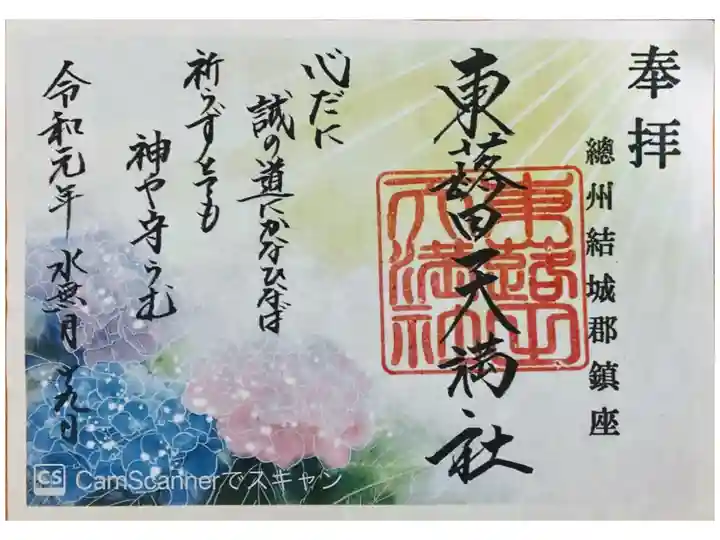 奉拝
總州結城郡鎮座
東蕗田天満社
心だに
誠の道にかなひなば
祈らずとても
神や守らむ
令和元年 水無月 十九日
CS CamScannerでスキャン